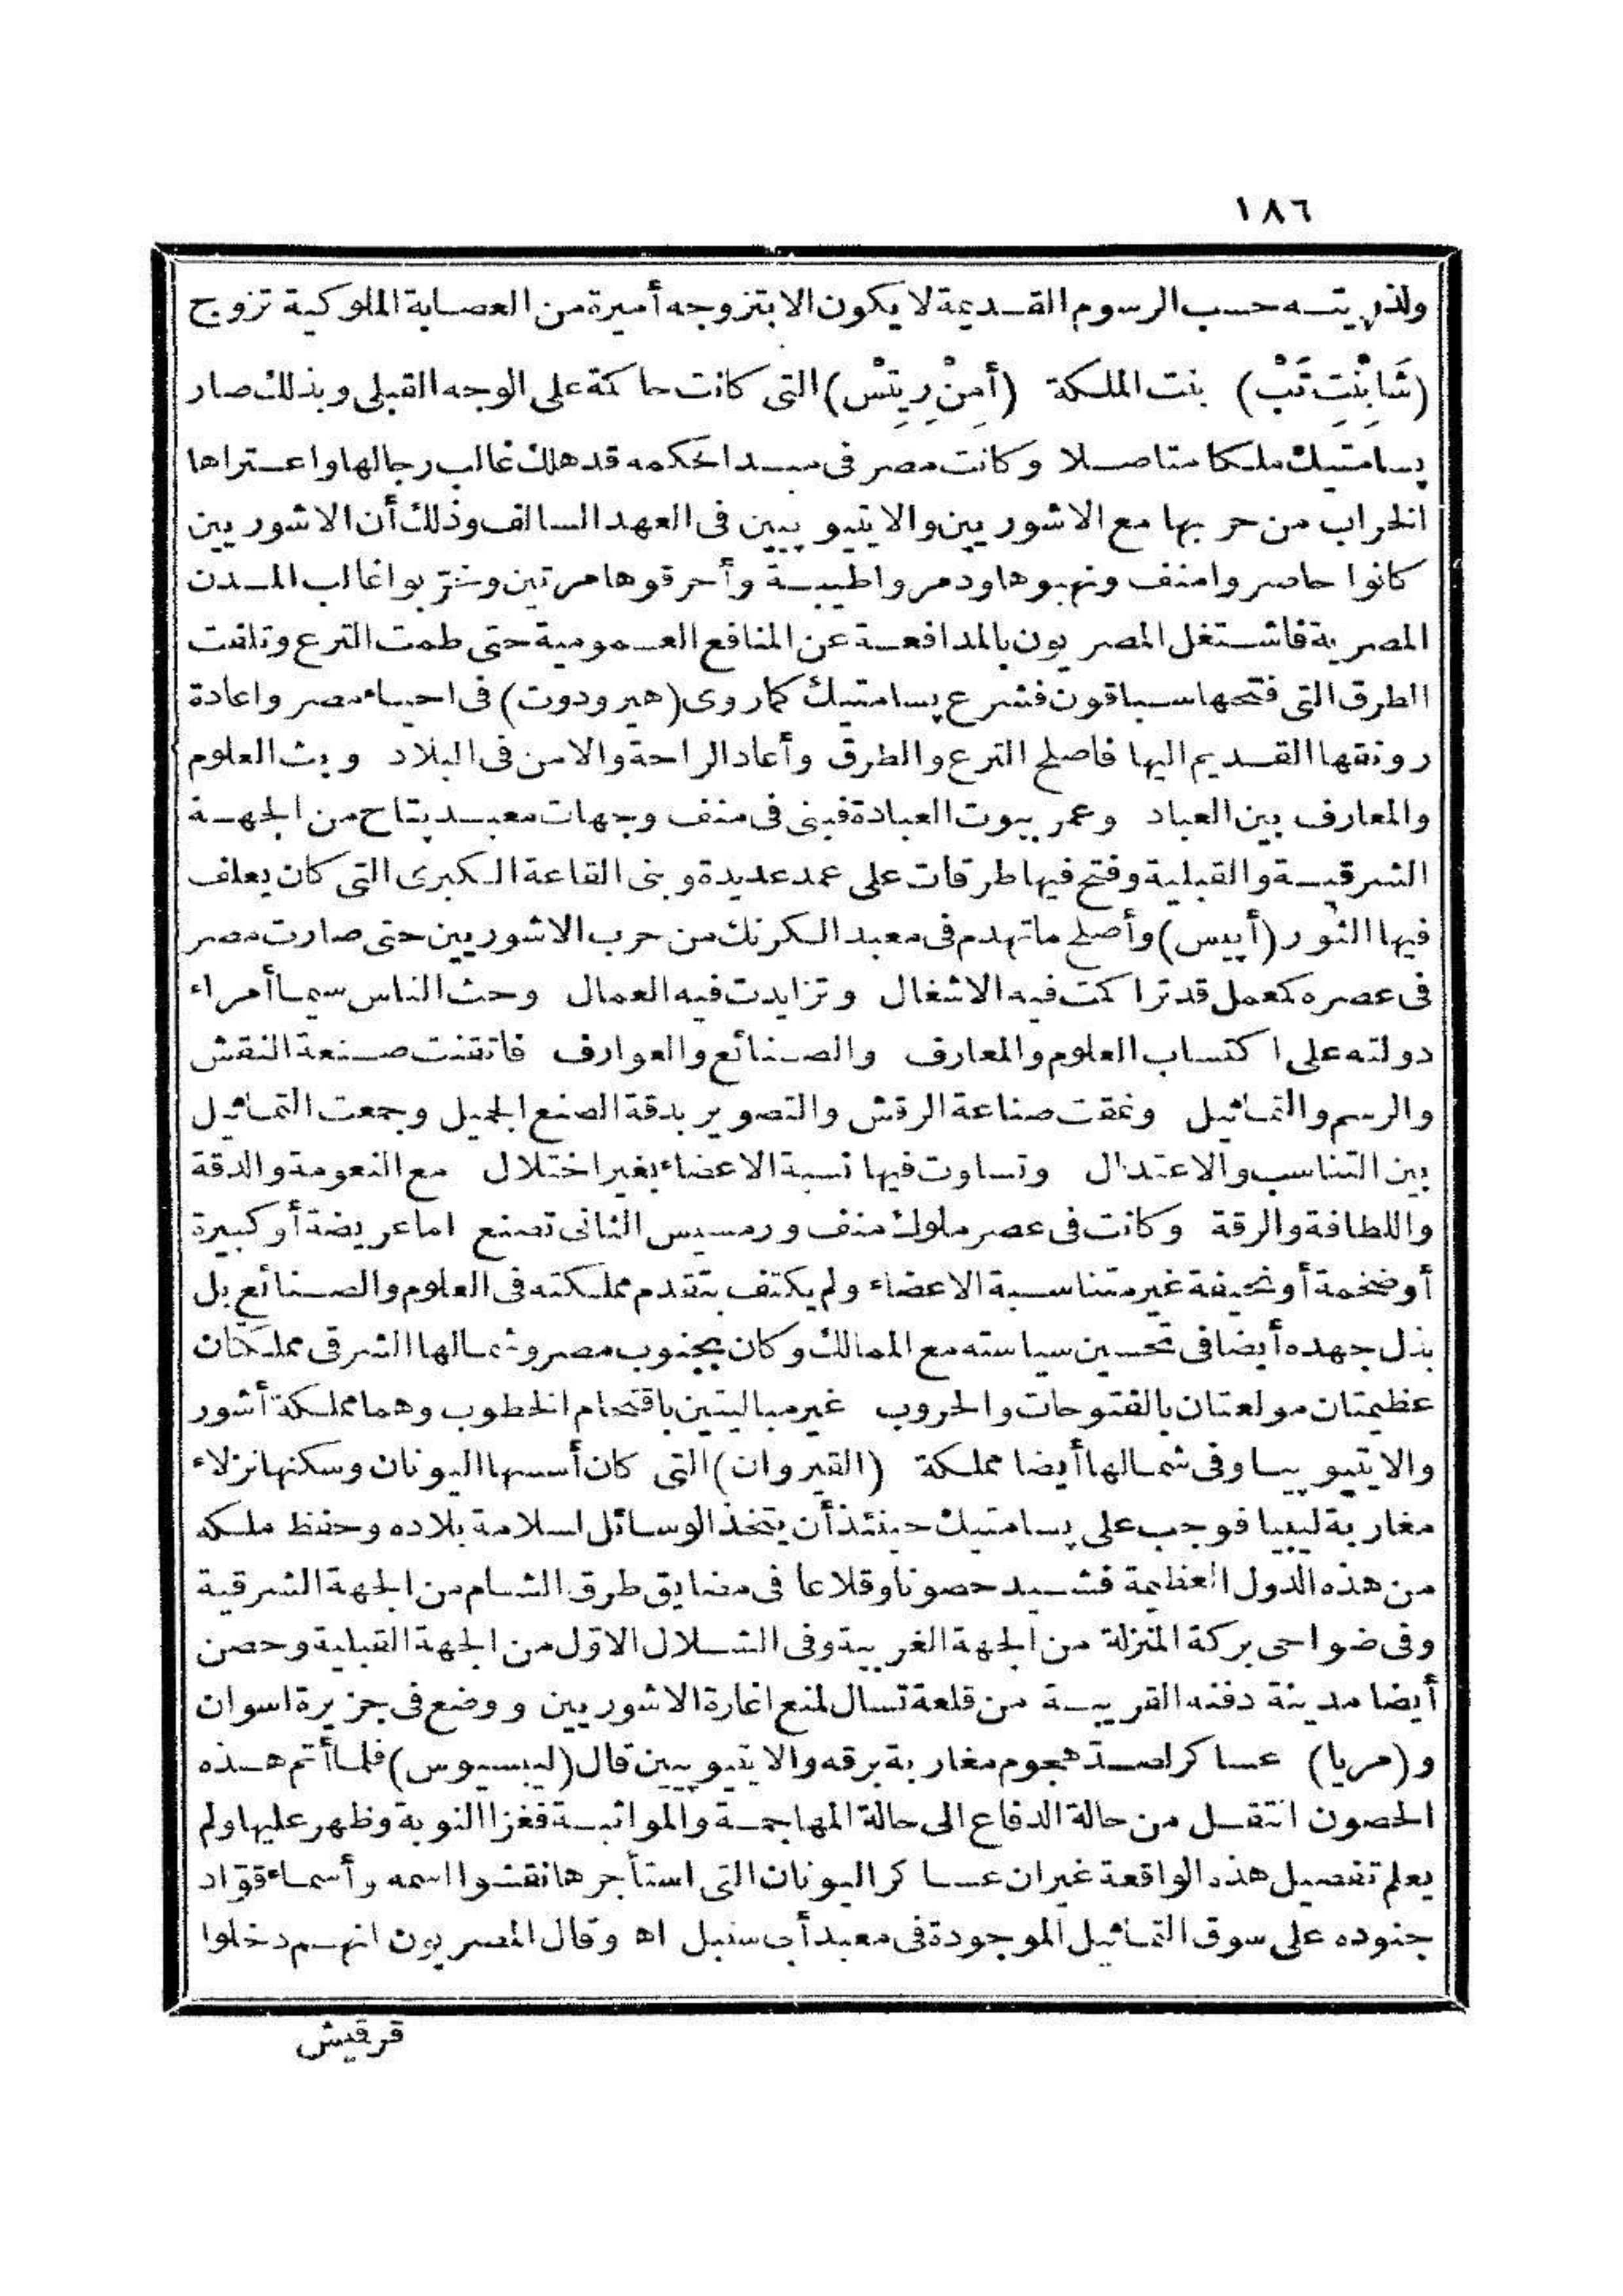 ١٨٦
ولذريته حسب الرسوم القديمة لا يكون الا بتزوجه أميرة من العصابة الملوكية تزوج
(شَابِنْتِ تَبْ) بنت الملكة (أَمِنْ رِيتِسْ) التى كانت حاكمة على الوجه القبلى وبذلك صار
پسامتيك ملكا متاصلا وكانت مصر فى مبدا حكمه قد هلك غالب رجالها واعتراها
الخراب من حربها مع الاشوريين والايتيوپيين فى العهد السالف وذلك أن الاشوريين
كانوا حاصروا منف ونهبوها ودمروا طيبة وأحرقوها مرتين وخرّبوا غالب المدن
المصرية فاشتغل المصريون بالمدافعة عن المنافع العمومية حتى طمت الترع وتلفت
الطرق التى فتحها سباقون فشرع پسامتيك كما روى (هيرودوت) فى احياء مصر واعادة
رونقها القديم اليها فاصلح الترع والطرق وأعاد الراحة والامن فى البلاد وبث العلوم
والمعارف بين العباد وعمر بيوت العبادة فبنى فى منف وجهات معبد پتاح من الجهة
الشرقية والقبلية وفتح فيها طرقات على عمد عديدة وبنى القاعة الكبرى التى كان يعلف
فيها الثور (أپيس) وأصلح ما تهدم فى معبد الكرنك من حرب الاشوريين حتى صارت مصر
فى عصره كمعمل قد تراكمت فيه الاشغال وتزايدت فيه العمال وحث الناس سيما أمراء
دولته على اكتساب العلوم والمعارف والصنائع والعوارف فاتقنت صنعة النقش
والرسم والتماثيل ونمقت صناعة الرقش والتصوير بدقة الصنع الجميل وجمعت التماثيل
بين التناسب والاعتدال وتساوت فيها نسبة الاعضاء بغير اختلال مع النعومة والدقة
واللطافة والرقة وكانت فى عصر ملوك منف ورمسيس الثانى تصنع اما عريضة أو كبيرة
أو ضخمة أو نحيفة غير متناسبة الاعضاء ولم يكتف بتقدم مملكته فى العلوم والصنائع بل
بذل جهده أيضا فى تحسين سياسته مع الممالك وكان بجنوب مصر وشمالها الشرقى مملكتان
عظيمتان مولعتان بالفتوحات والحروب غير مباليتين باقتحام الخطوب وهما مملكة أشور
والايتيوپيا وفى شمالها أيضا مملكة (القيروان) التى كان أسسها اليونان وسكنها نزلاء
مغاربة ليبيا فوجب على پسامتيك حينئذ أن يتخذ الوسائل لسلامة بلاده وحفظ ملكه
من هذه الدول العظيمة فشيد حصونا وقلاعا فى مضايق طرق الشام من الجهة الشرقية
وفى ضواحى بركة المنزلة من الجهة الغربية وفى الشلال الاوّل من الجهة القبلية وحصن
أيضا مدينة دفنه القريبة من قلعة تسال لمنع اغارة الاشوريين ووضع فى جزيرة اسوان
و(مريا) عساكر لصدّ هجوم مغاربة برقه والايتيوپيين قال (ليبسيوس) فلما أتم هذه
الحصون انتقل من حالة الدفاع الى حالة المهاجمة والمواثبة فغزا النوبة وظهر عليها ولم
يعلم تفصيل هذه الواقعة غير ان عساكر اليونان التى استأجرها نقشوا اسمه وأسماء قوّاد
جنوده على سوق التماثيل الموجودة فى معبد أبى سنبل اه وقال المصريون انهم دخلوا
قرقيش